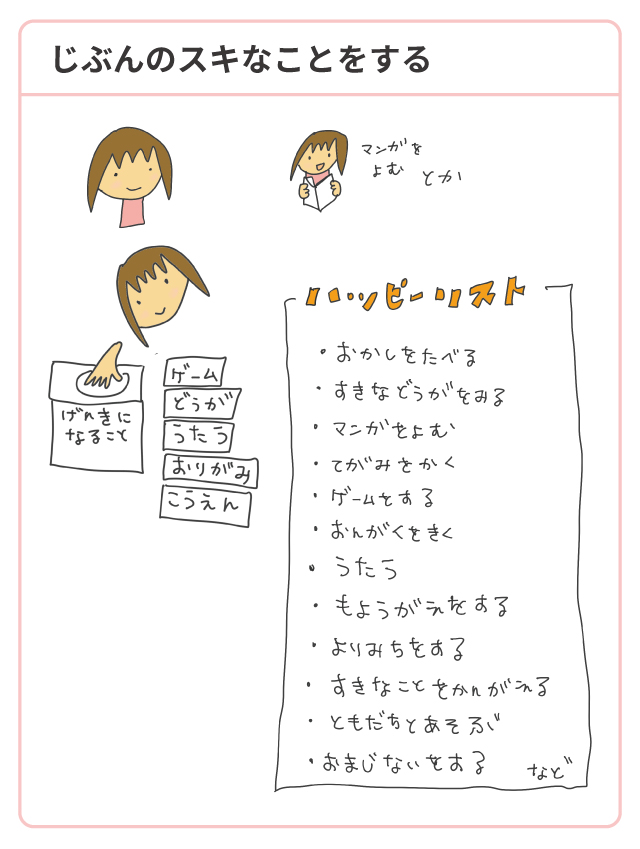 じぶんのスキなことをする
マンガを
よむ とか
げんきに
なること
ゲーム
どうが
うたう
おりがみ
こうえん
ハッピーリスト
・おかしをたべる
・すきなどうがをみる
・マンガをよむ
・てがみをかく
・ゲームをする
・おんがくをきく
・うたう
・もようがえをする
・よりみちをする
・すきなことをかんがえる
・ともだちとあそぶ
・おまじないをする
など